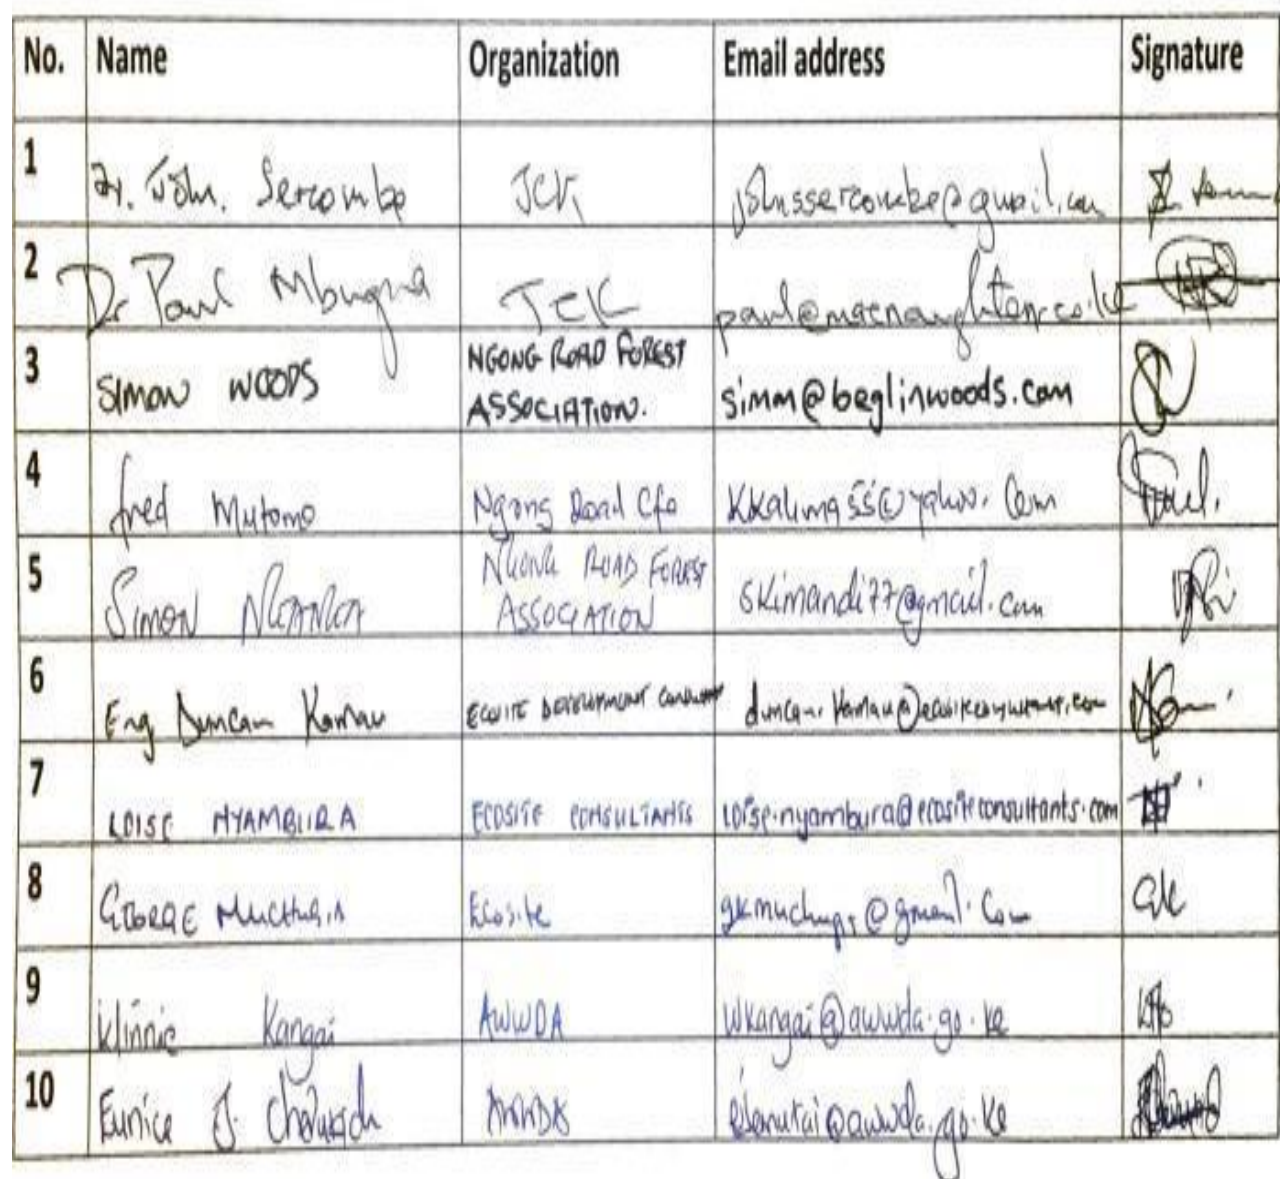 No. Name Organization Email address Signature
1 Dr. John. Sercombe JCK johnssercombe@gmail.com
2 Dr Paul Mbugua JCK paul@macnaughten.co.ke
3 SIMON WOODS NGONG ROAD FOREST ASSOCIATION. simon@beglinwoods.com
4 fred Mutomo Ngong Road Cfa Kkalima55@yahoo.com
5 SIMON NGANGA NGONG ROAD FOREST ASSOCIATION skimandi77@gmail.com
6 Eng Duncan Kamau ECOSITE DEVELOPMENT duncan.kamau@ecositeconsultants.com
7 LOISE NYAMBURA ECOSITE CONSULTANTS loise.nyambura@ecositeconsultants.com
8 GEORGE Ecosite
9 Kangai AWWDA wkangai@awwda.go.ke
10 Eunice J. AWWDA